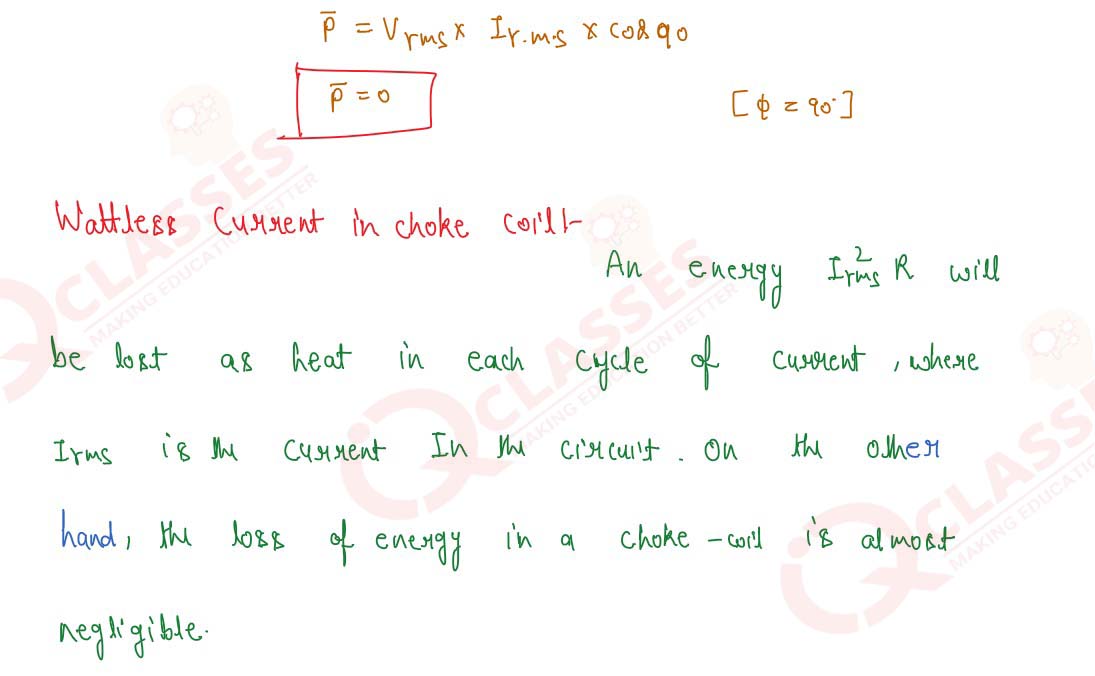 p̅ = Vrms x Ir.m.s x cos 90
p̅ = 0 [ϕ = 90°]
Wattless Current in choke coil:-
An energy I²rms R will
be lost as heat in each cycle of current, where
Irms is the current In the circuit. On the other
hand, the loss of energy in a choke-coil is almost
negligible.
CLASSES
MAKING EDUCATION BETTER
CLASSES
MAKING EDUCATION BETTER
CLASSES
MAKING EDUCATION